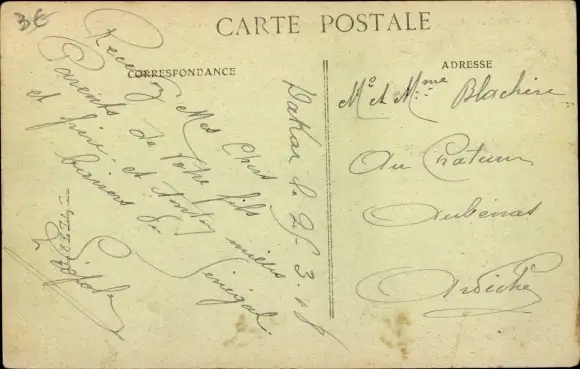 3€
CARTE POSTALE
CORRESPONDANCE
ADRESSE
Dakar le 25.3.18
Recevez Mes Chers
Parents de Votre fils
et frère et
baisers du Sénégal
Mr et Mme Blachère
Au Château
Aubenas
Ardèche